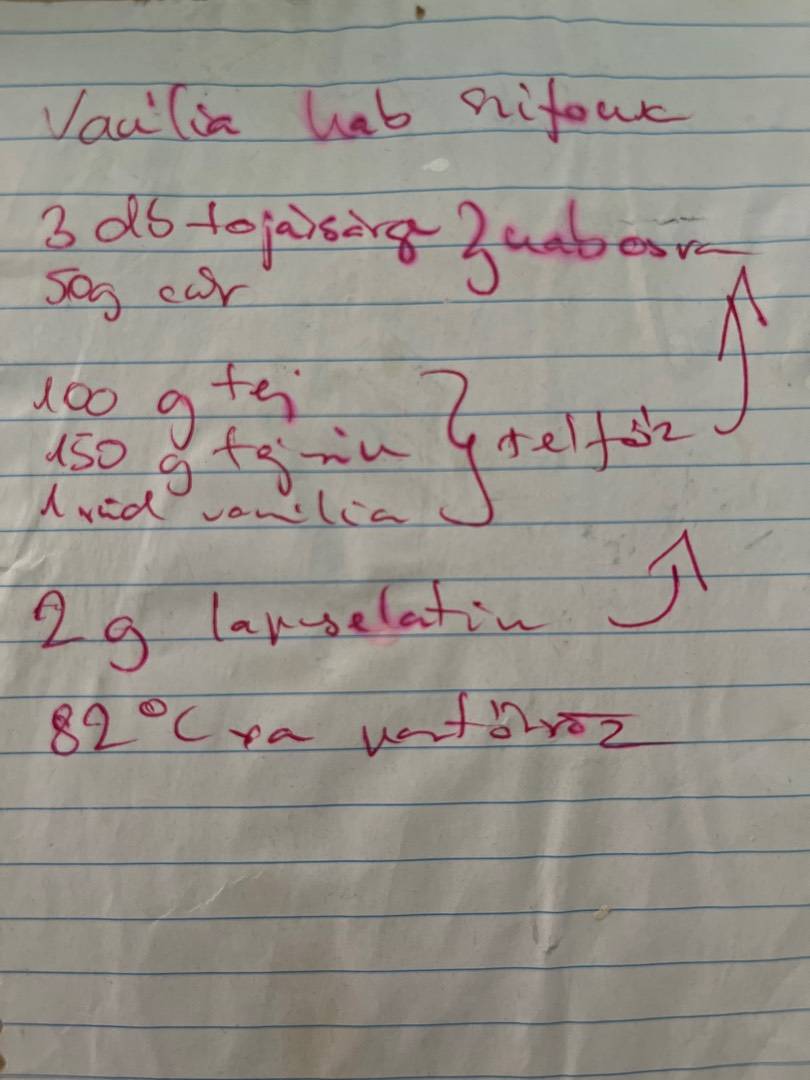 Vanilia hab szifonk
3 db tojássárga } habosra
50g cukr
100 g tej
150 g tejszin } felfőz
1 rúd vanilia
2 g lapzselatin
82 °C ra